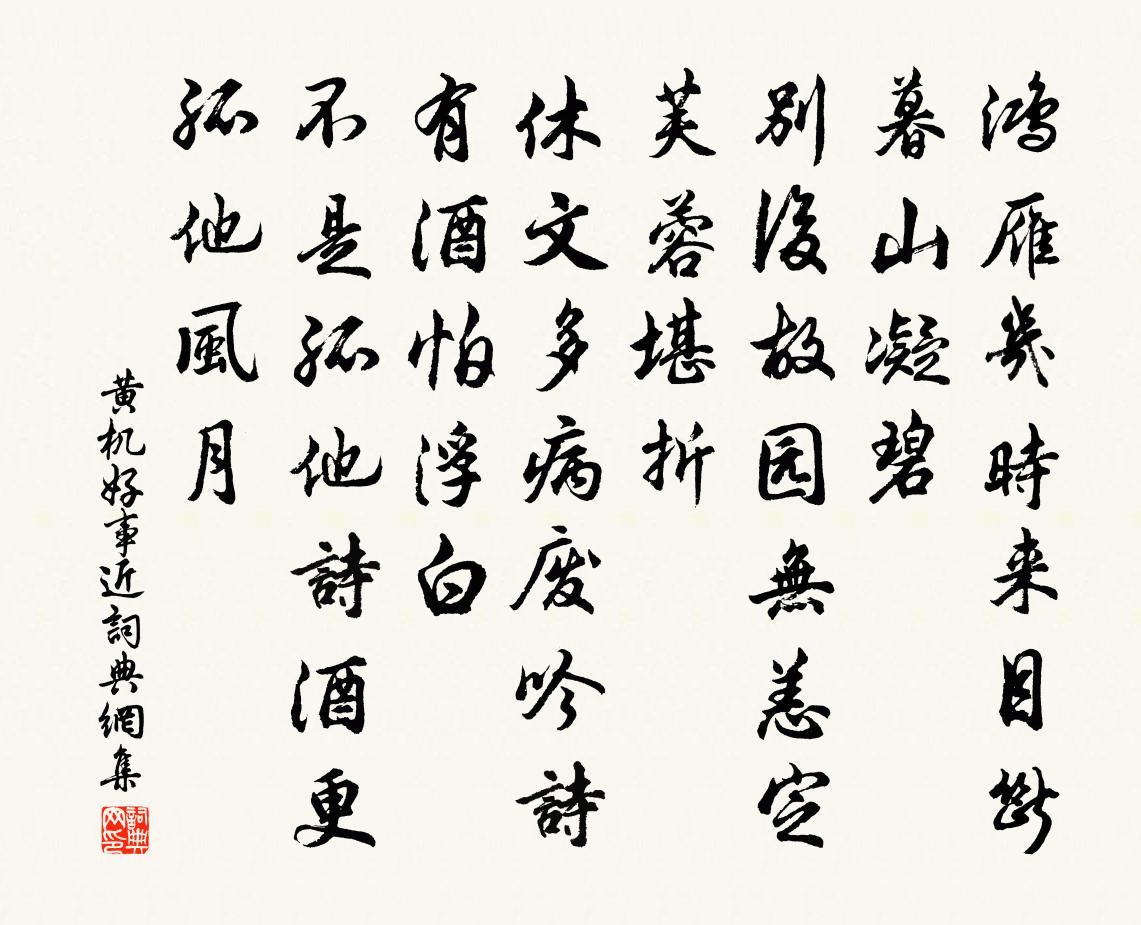 鴻雁幾時来目斷
暮山凝碧
別後故园無恙定
芙蓉堪折
休文多病废吟詩
有酒怕浮白
不是孤他詩酒更
孤他風月
黄机好事近詞典網集
詞典网印